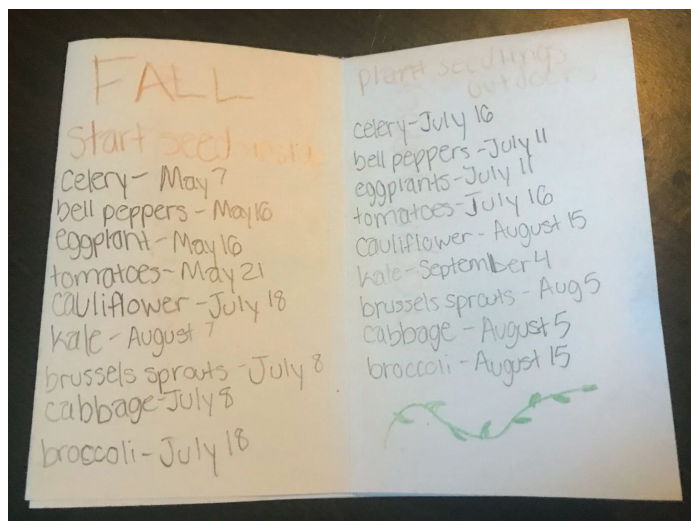 FALL
start seed inside
celery - May 7
bell peppers - May 16
eggplant - May 16
tomatoes - May 21
cauliflower - July 18
kale - August 7
brussels sprouts - July 8
cabbage - July 8
broccoli - July 18
plant seedlings
outdoors
celery - July 16
bell peppers - July 11
eggplants - July 11
tomatoes - July 16
cauliflower - August 15
kale - September 4
brussels sprouts - Aug 5
cabbage - August 5
broccoli - August 15